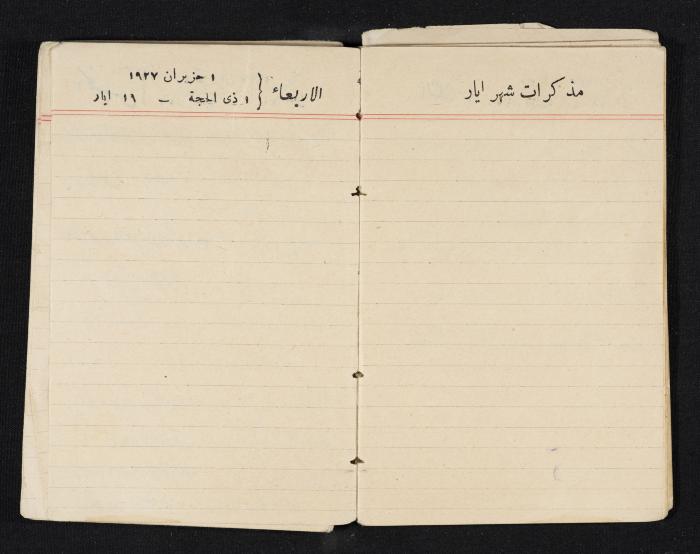 مذكرات شهر ايار
الاربعاء { ١ حزيران ١٩٢٧
١ ذى الحجة ـ ١٩ ايار